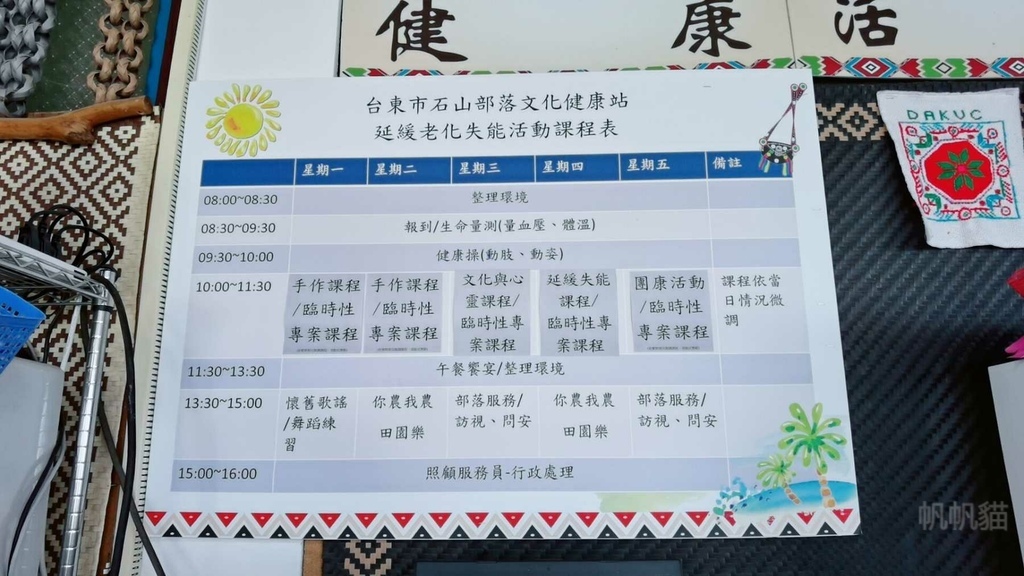 健 康 活
DAKUC
台東市石山部落文化健康站
延緩老化失能活動課程表
星期一 星期二 星期三 星期四 星期五 備註
08:00~08:30 整理環境
08:30~09:30 報到/生命量測(量血壓、體溫)
09:30~10:00 健康操(動肢、動姿)
10:00~11:30 手作課程 手作課程 文化與心 延緩失能 團康活動 課程依當
/臨時性 /臨時性 靈課程/ 課程/ /臨時性 日情況微
專案課程 專案課程 臨時性專 臨時性專 專案課程 調
案課程 案課程
11:30~13:30 午餐饗宴/整理環境
13:30~15:00 懷舊歌謠 你農我農 部落服務/ 你農我農 部落服務/
/舞蹈練 田園樂 訪視、問安 田園樂 訪視、問安
習
15:00~16:00 照顧服務員-行政處理
帆帆貓